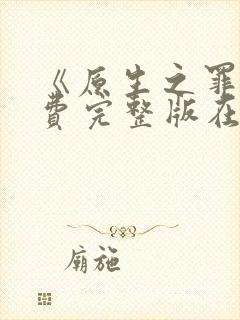 《原生之罪
费完整版在
庙施